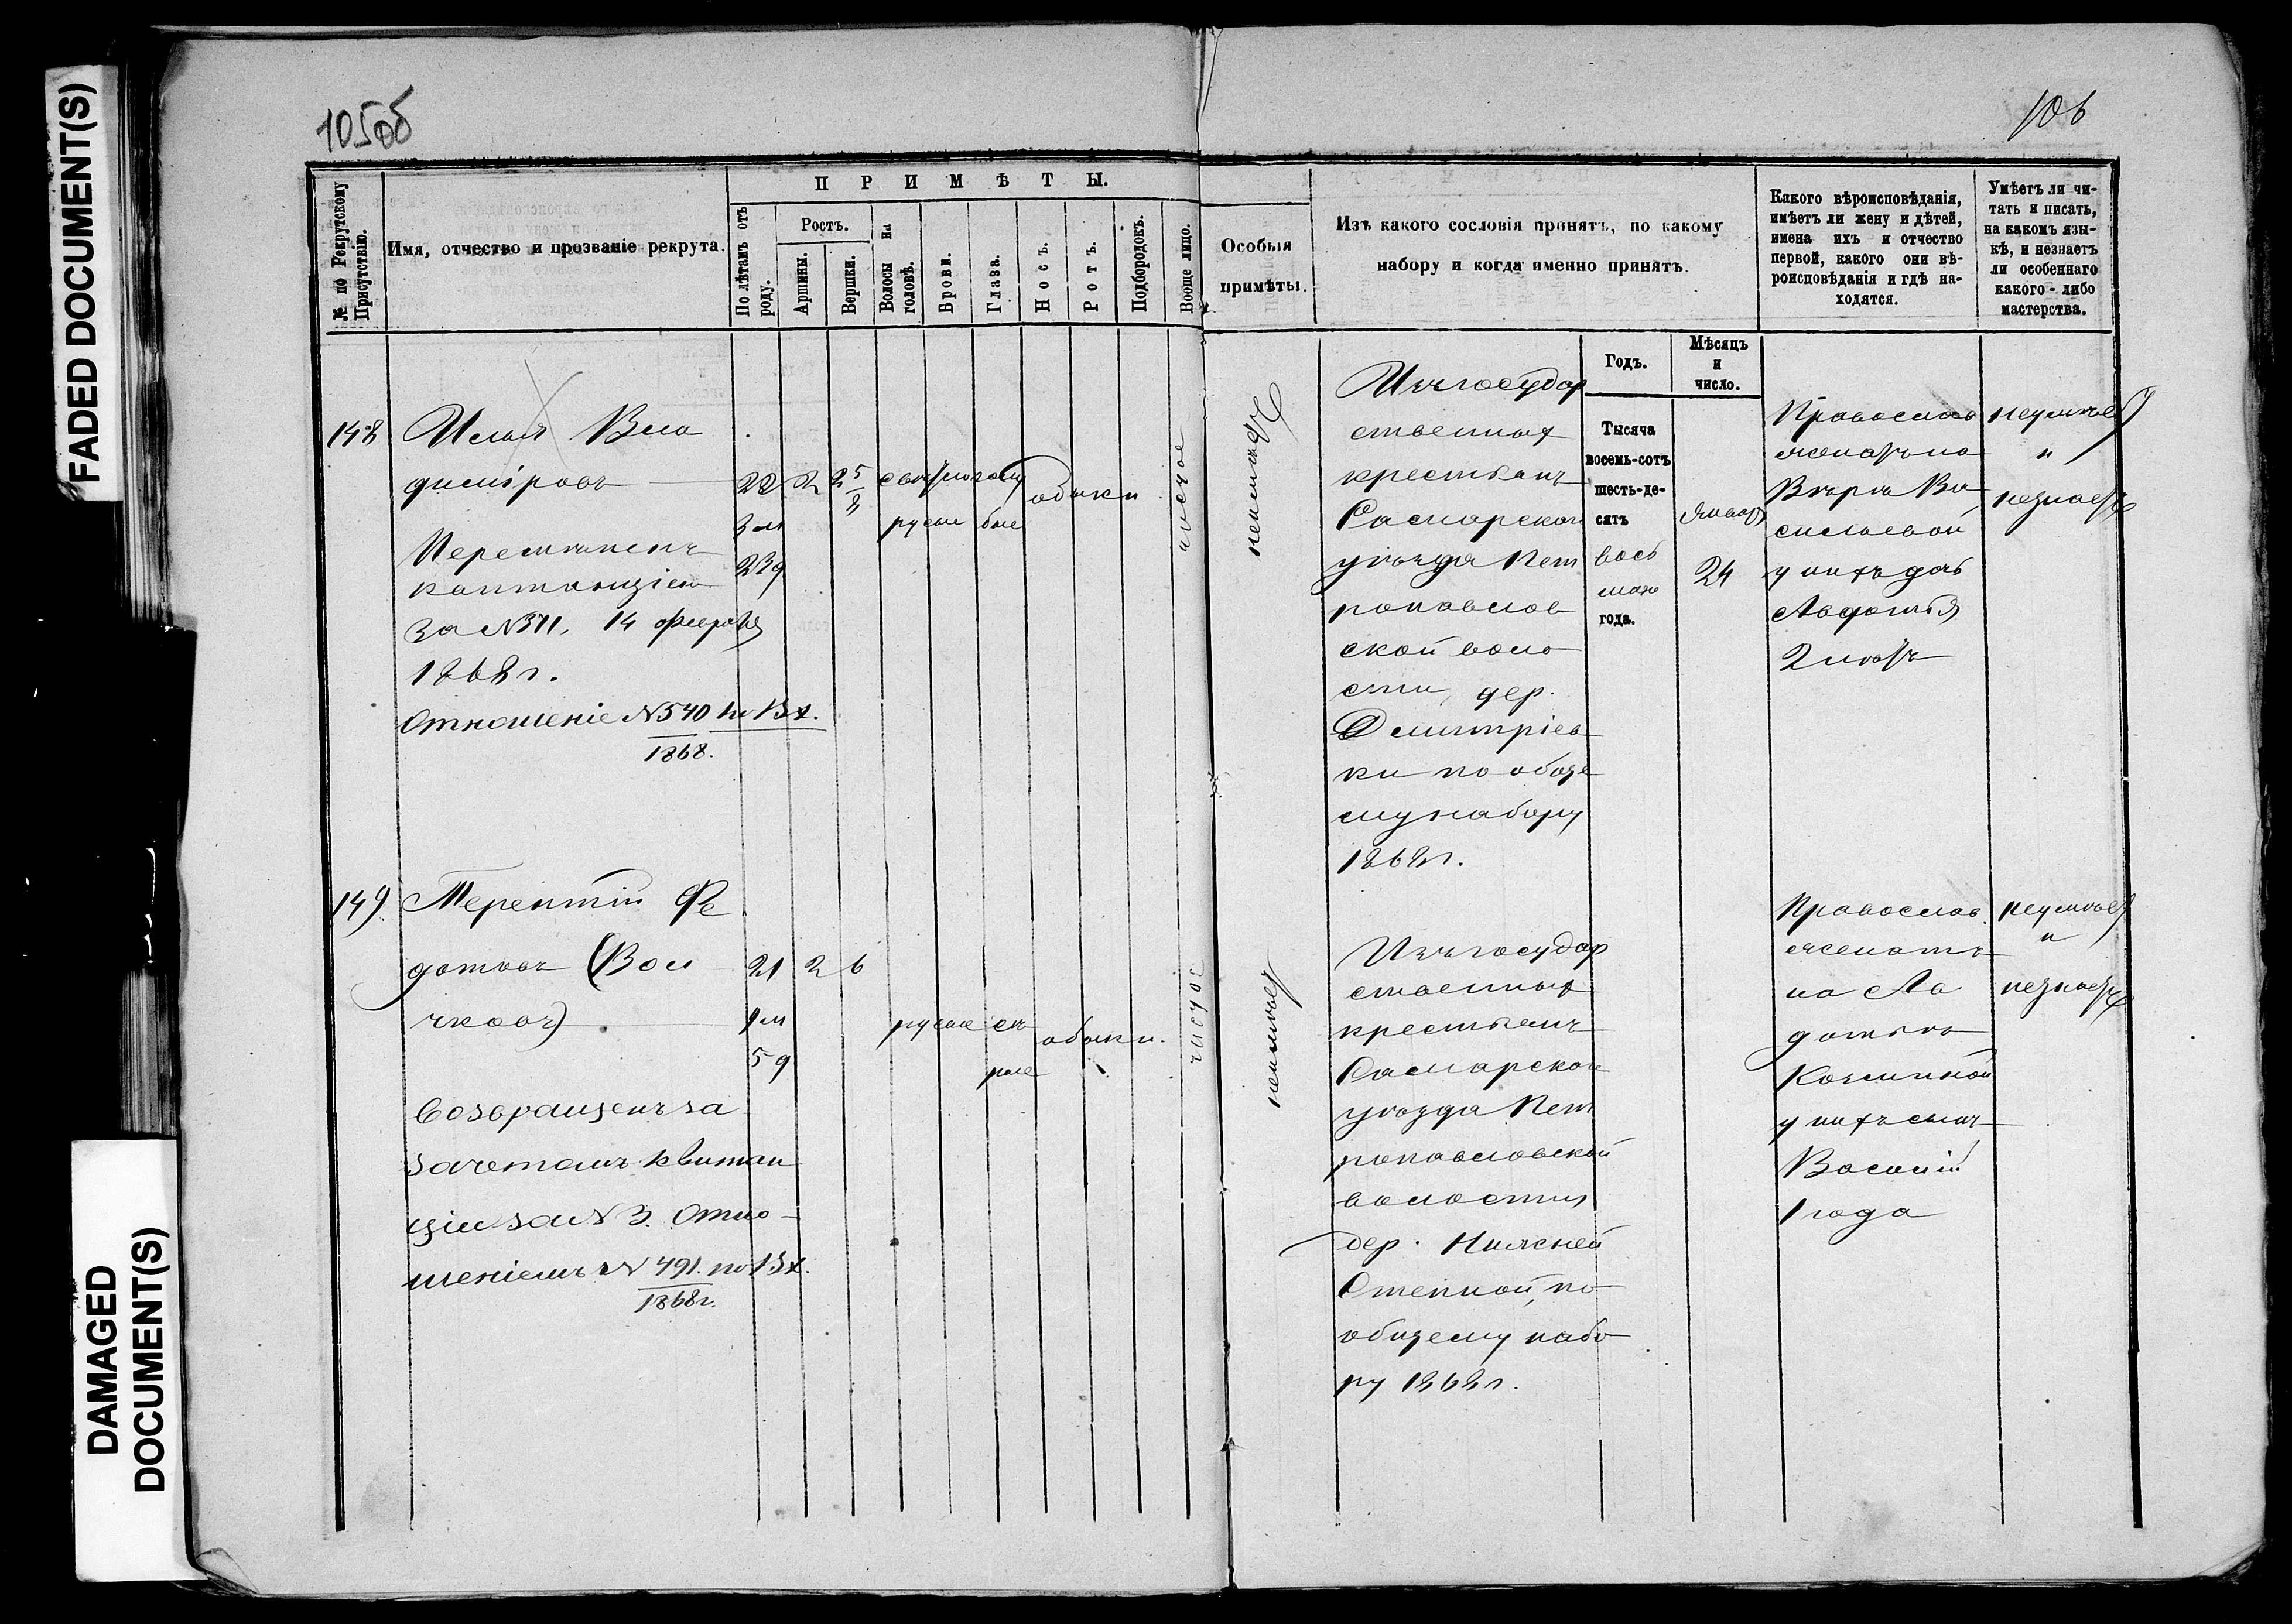 FADED DOCUMENT(S)
DAMAGED
DOCUMENT(S)
105об
106
№ по Рекрутскому
Присутствію.
Имя, отчество и прозваніе рекрута.
ПРИМѢТЫ.
По лѣтамъ отъ
роду.
Ростъ.
Аршины.
Вершки.
Волосы на
головѣ.
Брови.
Глаза.
Носъ.
Ротъ.
Подбородокъ.
Вооще лицо.
Особыя
примѣты.
Изъ какого сословія принятъ, по какому
набору и когда именно принятъ.
Какого вѣроисповѣданія,
имѣетъ ли жену и дѣтей,
имена ихъ и отчество
первой, какого они вѣ-
роисповѣданія и гдѣ на-
ходятся.
Умѣетъ ли чи-
тать и писать,
на какомъ язы-
кѣ, и незнаетъ
ли особеннаго
какого-либо
мастерства.
Годъ.
Мѣсяцъ
и
число.
148
Илья Вла
диміровъ
22 2 2 5/8
3 м
23 д
русые
обыкн
чистое
Перемѣненъ
квитанціею
за №311. 14 февраля
1868 г.
Отношеніе №540 по Вх.
1868.
неимѣетъ
Изъ государ
ственныхъ
крестьянъ
Самарскаго
уѣзда Пет
ропавлов
ской воло
сти, дер.
Дмитріев
ки по обще
му набору
1868 г.
Тысяча
восемь-сотъ
шесть-де-
сятъ
вось
маго
года.
Январ
24
Православ
женатъ на
Вѣрѣ Ва
сильевой
у нихъ дочь
Авдотья
2 лѣтъ
неумѣетъ
и
незнаетъ
149.
Терентій Фе
дотовъ (Вол
чковъ)
21 2 6
1 м
5 д
русые сѣ
рые
обыкн.
чистое
Возвращенъ за
зачетомъ квитан
ціи за №3. Отно-
шеніемъ №491. по Вх.
1868 г.
неимѣетъ
Изъ государ
ственныхъ
крестьянъ
Самарскаго
уѣзда Пет
ропавловской
волости,
дер. Нижней
Степной, по
общему набо
ру 1868 г.
Православ.
женатъ
на Ав
дотьѣ
Козминой
у нихъ сынъ
Василій
1 года
неумѣетъ
и
незнаетъ